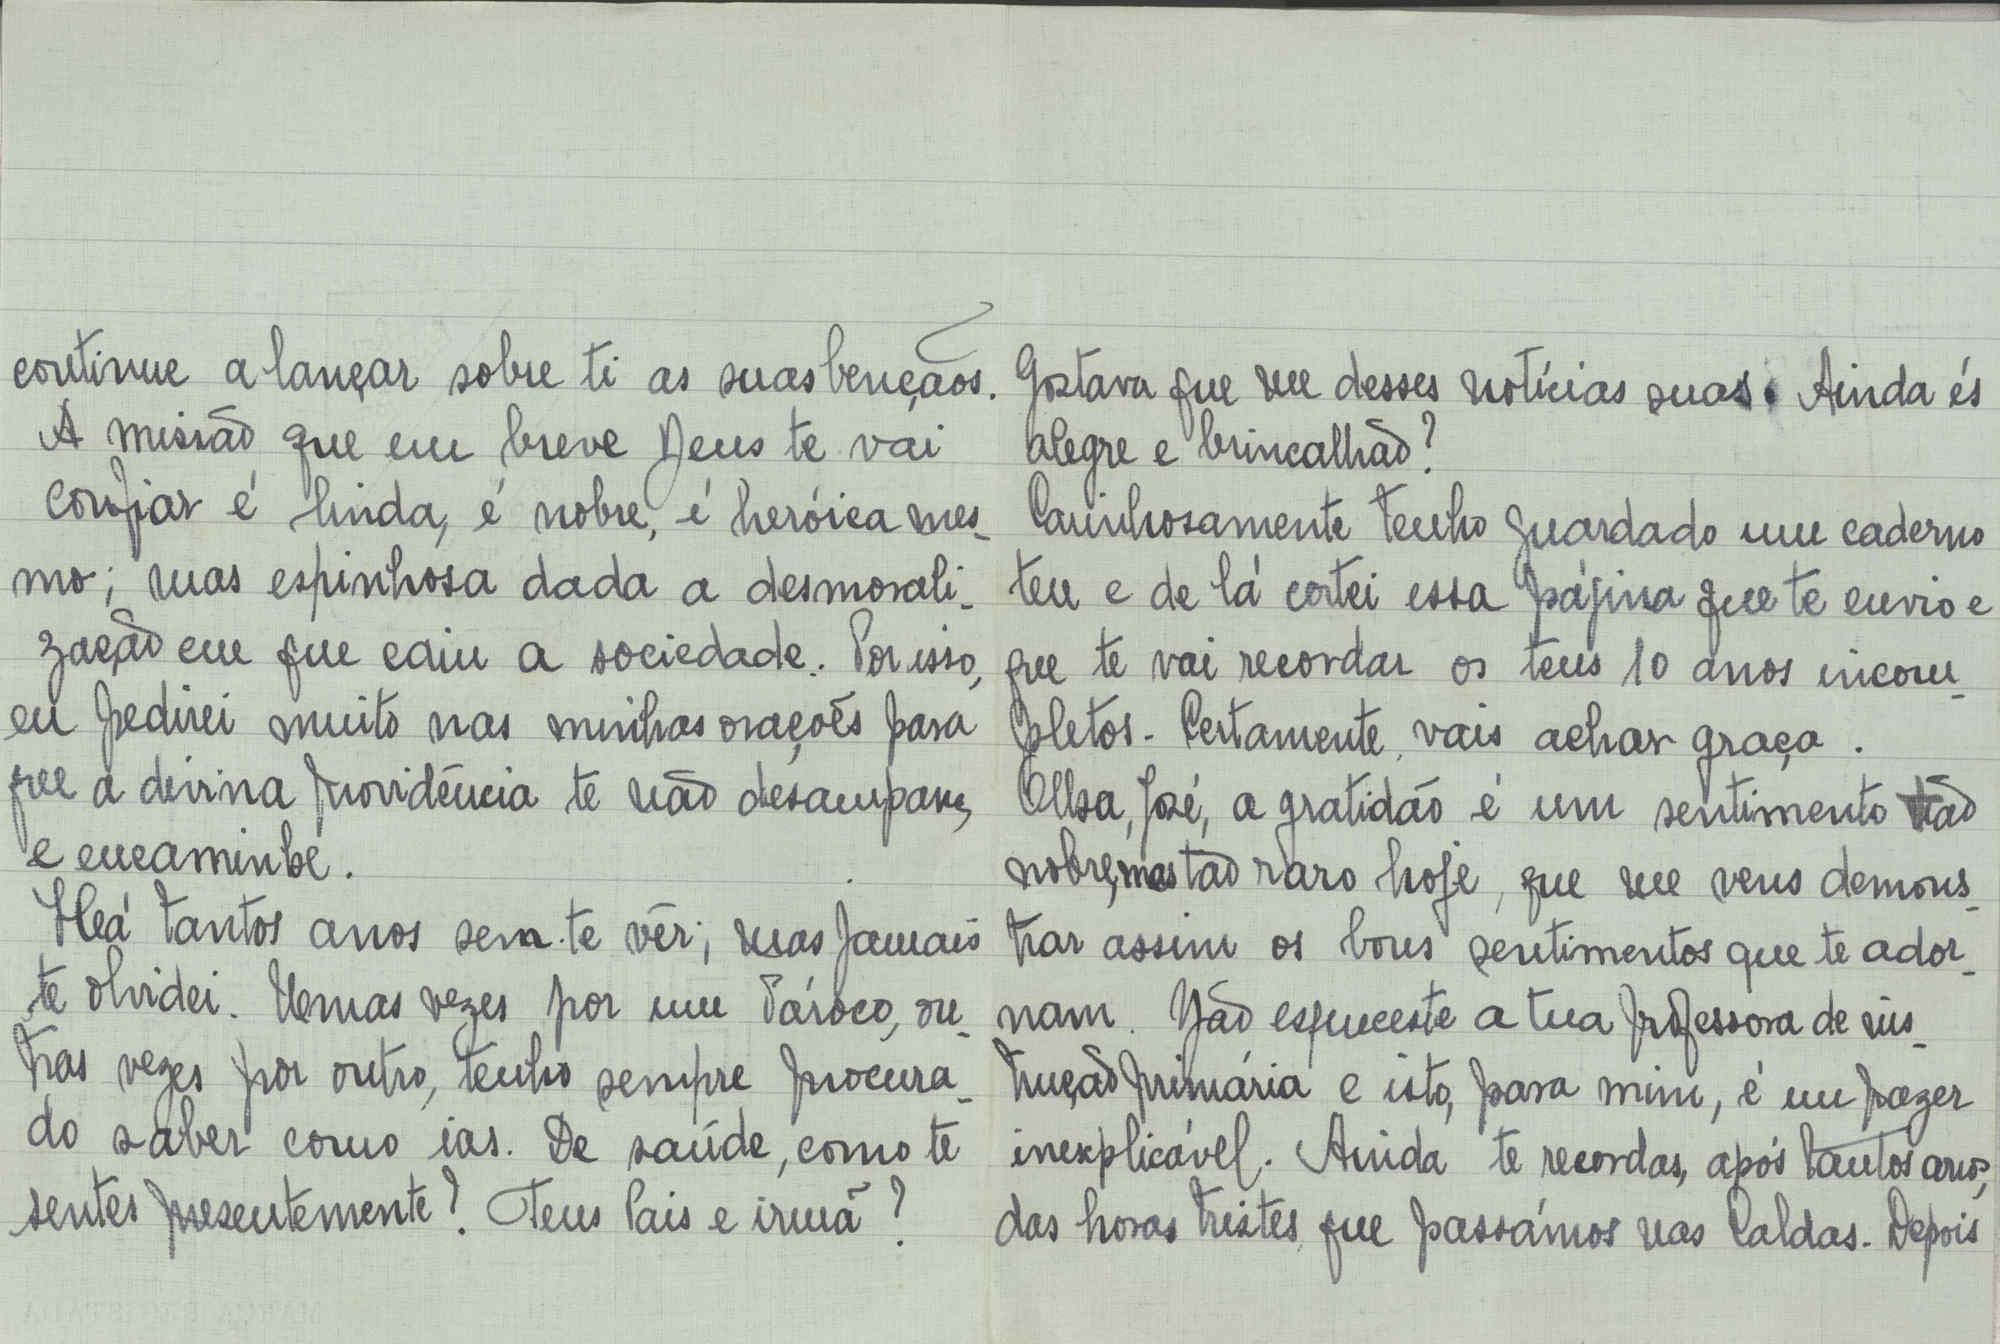 continue a lançar sobre ti as suas bençãos.
A missão que em breve Deus te vai
confiar é linda, é nobre, é heróica mes-
mo; mas espinhosa dada a desmorali-
zação em que caiu a sociedade. Por isso,
eu pedirei muito nas minhas orações para
que a divina providência te não desampare,
e encaminhe.
Há tantos anos sem te vêr; mas jamais
te olvidei. Umas vezes por um Pároco, ou-
tras vezes por outro, tenho sempre procura-
do saber como ias. De saúde, como te
sentes presentemente? Teus Pais e irmã?
Gostava que me desses notícias suas. Ainda és
alegre e brincalhão?
Carinhosamente tenho guardado um caderno
teu e de lá cortei essa página que te envio e
que te vai recordar os teus 10 anos incom-
pletos. Certamente, vais achar graça.
Olha, José, a gratidão é um sentimento tão
nobre, mas tão raro hoje, que me vens demons-
trar assim os bons sentimentos que te ador-
nam. Não esqueceste a tua professora de ins-
trução primária e isto, para mim, é um prazer
inexplicável. Ainda te recordas, após tantos anos,
das horas tristes que passámos nas Caldas. Depois